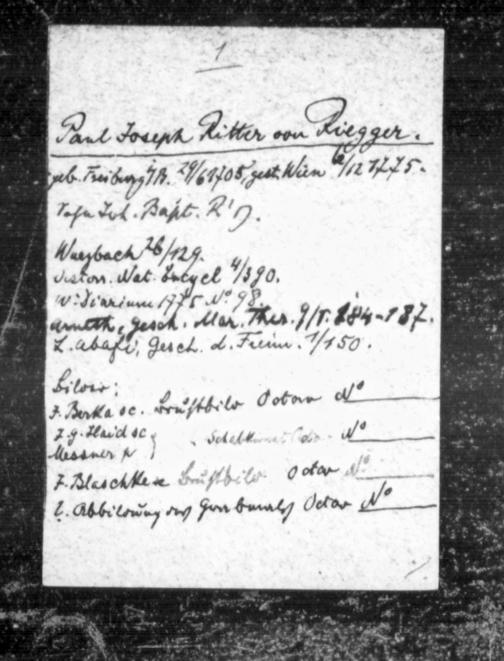 1
Paul Joseph Ritter von Riegger.
geb. Freiburg i/B. 29/6 1705, gest. Wien 2/12 1775.
Joh. Bapt. R
Wurzbach 26/129.
Oesterr. Nat. Encycl 4/390.
W. Diarium 1775 Nº 98.
Arneth, Gesch. Mar. Ther. 9/ 184-187.
L. Abafi, Gesch. d. Freim. 1/150.
Bilder:
F. Berka sc. Brustbild Octav Nº
J. G. Haid sc
Messmer p } Nº
F. Blaschke sc Brustbild Octav Nº
Abbildung des Grabmals Octav Nº